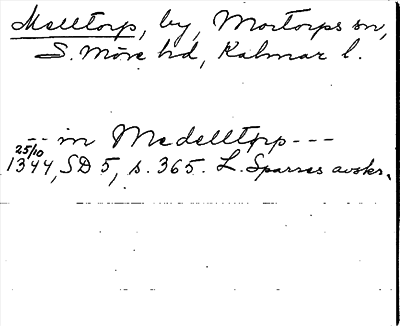 Melltorp, by, Mortorps sn,
S. Möre hd, Kalmar l.
-- in Medelltorp ---
25/10
1344, SD 5, s. 365. L. Sparres avskr.